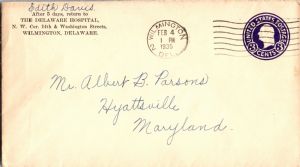 Edith Davis.
After 5 days, return to
THE DELAWARE HOSPITAL,
N. W. Cor. 14th & Washington Streets,
WILMINGTON, DELAWARE.
WILMINGTON
FEB 4
1 PM
1935
DEL.
UNITED STATES POSTAGE
CENTS
Mr. Albert B. Parsons
Hyattsville
Maryland.